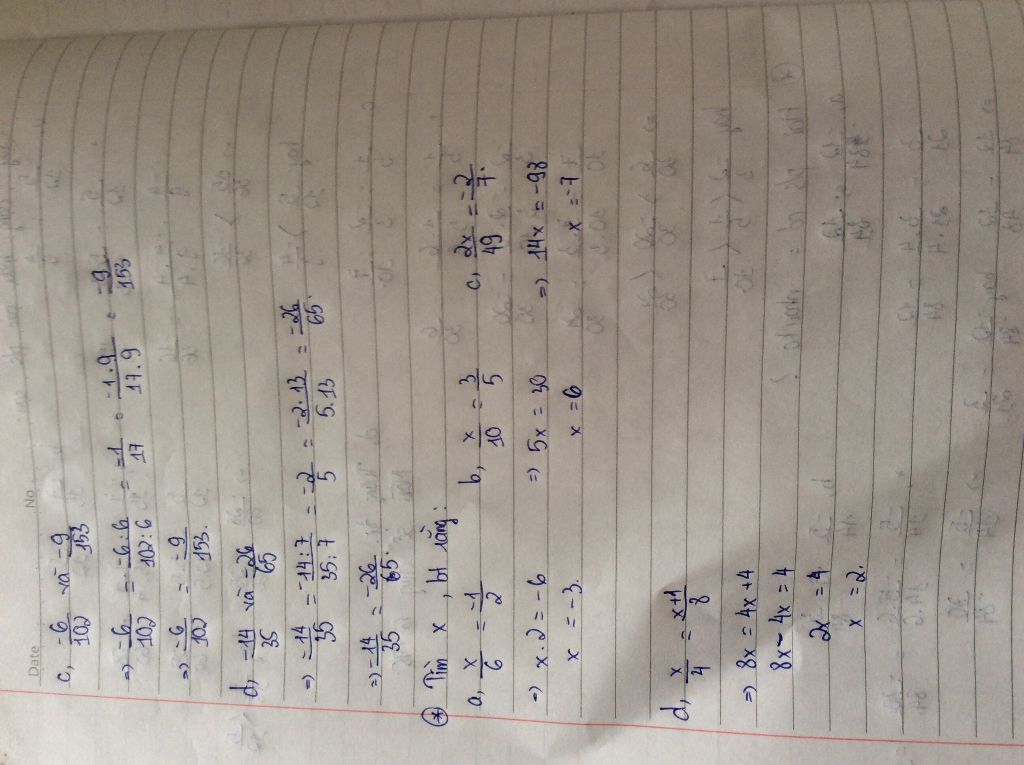 Date No
c, -6/102 và -9/153
=> -6/102 = -6:6/102:6 = -1/17 = -1.9/17.9 = -9/153
=> -6/102 = -9/153.
d, -14/35 và -26/65
=> -14/35 = -14:7/35:7 = -2/5 = -2.13/5.13 = -26/65.
=> -14/35 = -26/65.
* Tìm x, bt rằng:
a, x/6 = -1/2 b, x/10 = 3/5 c, 2x/49 = -2/7.
=> x.2 = -6 => 5x = 30 => 14x = -98
x = -3. x = 6 x = -7
d, x/4 = x+1/8
=> 8x = 4x+4
8x - 4x = 4
2x = 4.
x = 2.